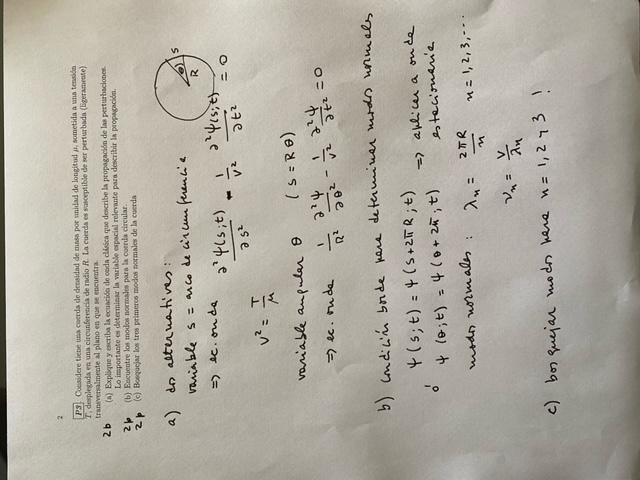 2
P3 Considere tiene una cuerda de densidad de masa por unidad de longitud μ, sometida a una tensión
T, desplegada en una circunferencia de radio R. La cuerda es susceptible de ser perturbada (ligeramente)
transversalmente al plano en que se encuentra.
2p (a) Explique y escriba la ecuación de onda clásica que describe la propagación de las perturbaciones.
Lo importante es determinar la variable espacial relevante para describir la propagación.
2p (b) Encuentre los modos normales para la cuerda circular.
2p (c) Bosquejar los tres primeros modos normales de la cuerda
a) dos alternativas:
variable s = arco de circunferencia
θ R s
⇒ ec. onda ∂²ψ(s;t)/∂s² - 1/v² ∂²ψ(s;t)/∂t² = 0
v² = T/μ
variable angular θ (s = Rθ)
⇒ ec. onda 1/R² ∂²ψ/∂θ² - 1/v² ∂²ψ/∂t² = 0
b) condición borde para determinar modos normales
ψ(s;t) = ψ(s+2πR;t) ⇒ aplicar a onda
ó ψ(θ;t) = ψ(θ+2π;t) estacionaria
modos normales: λn = 2πR/n n = 1,2,3,...
νn = v/λn
c) bosquejar modos para n = 1,2 y 3 !